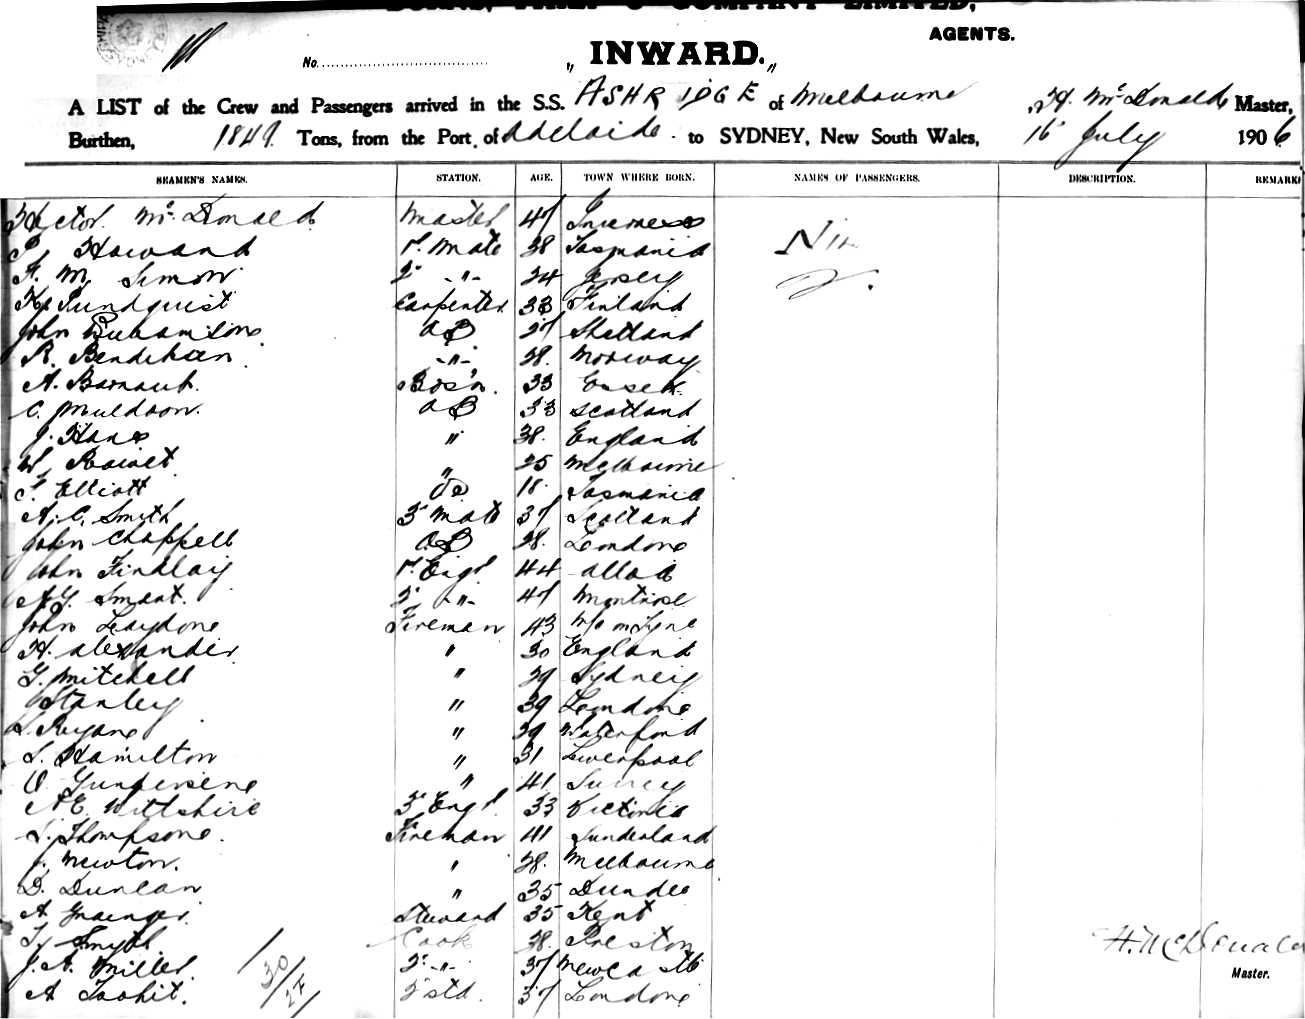 BURNS, PHILP & COMPANY LIMITED,
AGENTS.
No. „ INWARD. „
A LIST of the Crew and Passengers arrived in the S.S. ASHRIDGE of Melbourne H. McDonald Master,
Burthen, 1849 Tons, from the Port of Adelaide to SYDNEY, New South Wales, 16 July 1906
SEAMEN'S NAMES. STATION. AGE. TOWN WHERE BORN. NAMES OF PASSENGERS. DESCRIPTION. REMARKS
Hector McDonald Master 47 Inverness Nil
Howard 1st Mate 38 Tasmania
F. M. Simon 2 -"- 24 Jersey
Sundquist Carpenter 33 Finland
John AB 27 Shetland
R. -"- 28. Norway
A. Bos'n. 33 Essex
C. Muldoon. AB 33 Scotland
J. " 38. England
W. " 25 Melbourne
Elliott Do 18. Tasmania
A. C. Smith 3 Mate 37 Scotland
John Chappell AB 28. London
John Findlay 1st Engr 44 Alloa
Smart. 2 -"- 47 Montrose
John Fireman 43 N/C on Tyne
H. Alexander " 30 England
G. Mitchell " 29 Sydney
Stanley " 39 London
Ryan " 39 Waterford
S. Hamilton " 31 Liverpool
O. Gundersen " 41 Surrey
A. E. Wiltshire 3 Engr 33 Victoria
Thompson. Fireman 41 Sunderland
J. Newton. " 28. Melbourne
D. Duncan " 35 Dundee
A. Grainger. Steward 35 Kent
Smyth Cook 38. Preston
J. A. Miller. 2 -"- 37 Newcastle
A. 2 std. 37 London
30/27
H. McDonald
Master.